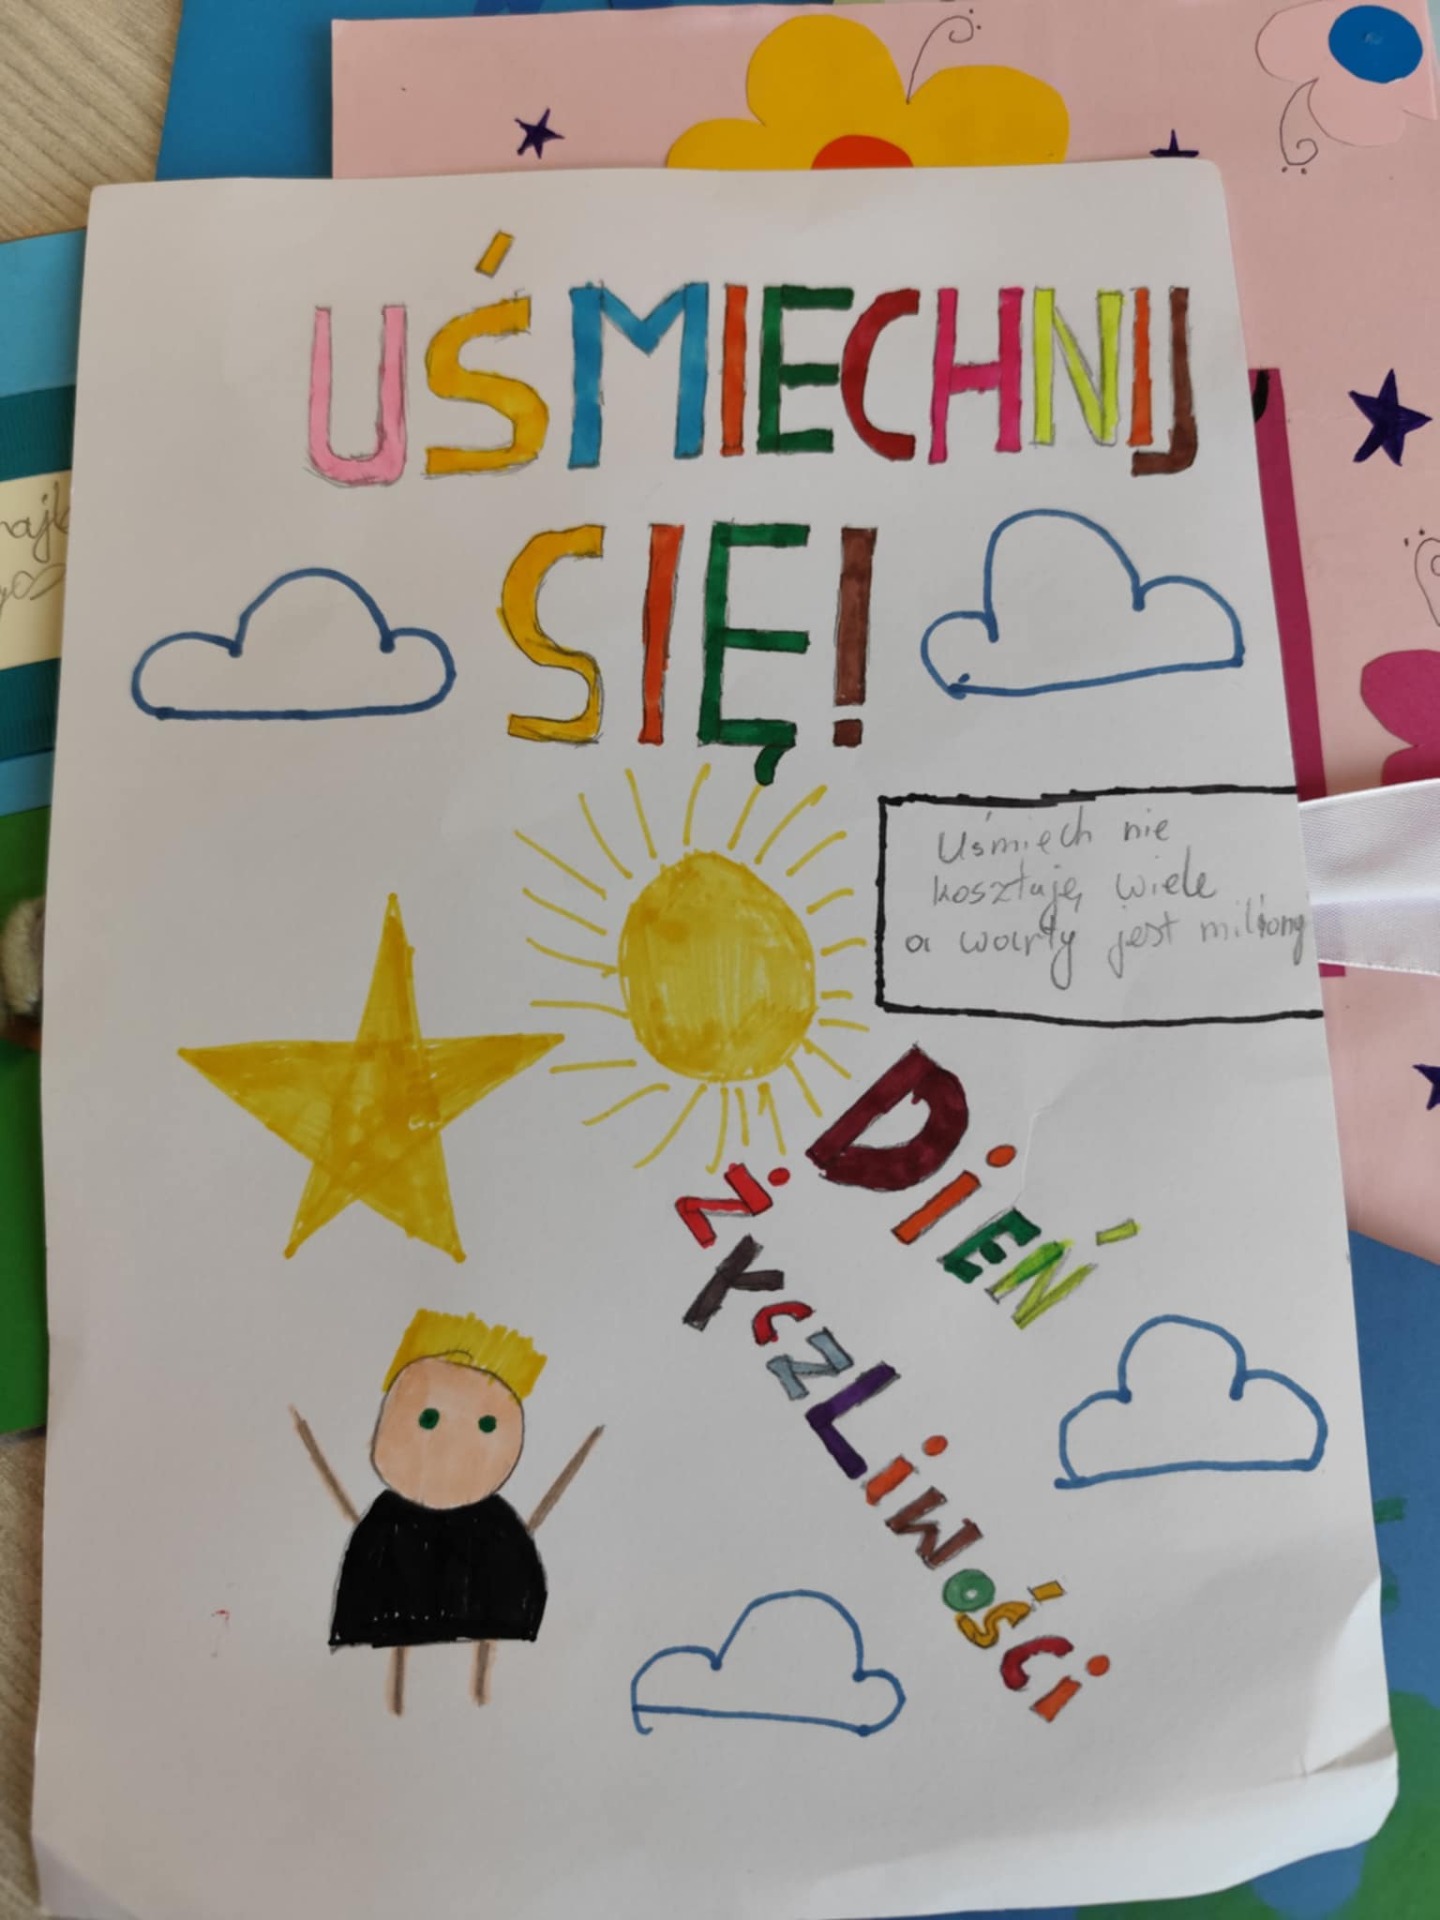 UŚMIECHNIJ
SIĘ!
Uśmiech nie
kosztuję wiele
a warty jest miliony
DiEŃ
ŻYCZLiWOŚCi